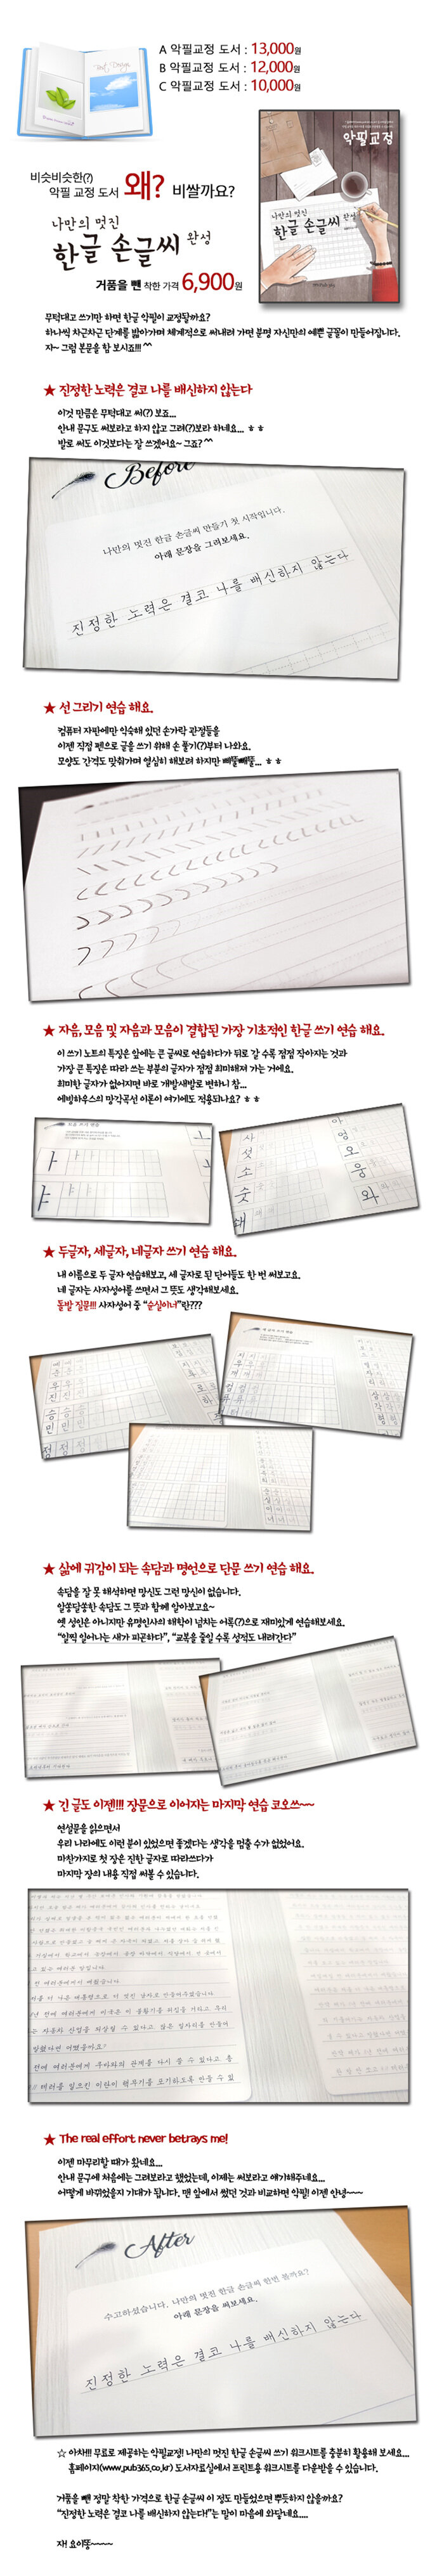 A 악필교정 도서 : 13,000원
B 악필교정 도서 : 12,000원
C 악필교정 도서 : 10,000원
비슷비슷한(?)
악필 교정 도서 왜? 비쌀까요?
나만의 멋진
한글 손글씨 완성
거품을 뺀 착한 가격 6,900원
악필교정
나만의 멋진
한글 손글씨 완성
무턱대고 쓰기만 하면 한글 악필이 교정될까요?
하나씩 차근차근 단계를 밟아가며 체계적으로 써내려 가면 분명 자신만의 예쁜 글꼴이 만들어집니다.
자~ 그럼 본문을 함 보시죠!!! ^^
★ 진정한 노력은 결코 나를 배신하지 않는다
이것 만큼은 무턱대고 써(?) 보죠...
안내 문구도 써보라고 하지 않고 그려(?)보라 하네요... ㅎㅎ
발로 써도 이것보다는 잘 쓰겠어요~ 그죠? ^^
Before
나만의 멋진 한글 손글씨 만들기 첫 시작입니다.
아래 문장을 그려보세요.
진정한 노력은 결코 나를 배신하지 않는다
★ 선 그리기 연습 해요.
컴퓨터 자판에만 익숙해 있던 손가락 관절들을
이젠 직접 펜으로 글을 쓰기 위해 손 풀기(?)부터 나와요.
모양도 간격도 맞춰가며 열심히 해보려 하지만 삐뚤빼뚤... ㅎㅎ
★ 자음, 모음 및 자음과 모음이 결합된 가장 기초적인 한글 쓰기 연습 해요.
이 쓰기 노트의 특징은 앞에는 큰 글씨로 연습하다가 뒤로 갈 수록 점점 작아지는 것과
가장 큰 특징은 따라 쓰는 부분의 글자가 점점 희미해져 가는 거에요.
희미한 글자가 없어지면 바로 개발새발로 변하니 참...
에빙하우스의 망각곡선 이론이 여기에도 적용되나요? ㅎㅎ
ㅑ
ㅑ
사
섯
소
숫
쇄
아
엉
오
웅
와
★ 두글자, 세글자, 네글자 쓰기 연습 해요.
내 이름으로 두 글자 연습해보고, 세 글자로 된 단어들도 한 번 써보고요.
네 글자는 사자성어를 쓰면서 그 뜻도 생각해보세요.
돌발 질문!!! 사자성어 중 “순실이녀”란???
★ 삶에 귀감이 되는 속담과 명언으로 단문 쓰기 연습 해요.
속담을 잘 못 해석하면 망신도 그런 망신이 없습니다.
알쏭달쏭한 속담도 그 뜻과 함께 알아보고요~
옛 성인은 아니지만 유명인사의 해학이 넘치는 어록(?)으로 재미있게 연습해보세요.
“일찍 일어나는 새가 피곤하다”, “교복을 줄일 수록 성적도 내려간다”
★ 긴 글도 이젠!!! 장문으로 이어지는 마지막 연습 코오쓰~~
연설문을 읽으면서
우리 나라에도 이런 분이 있었으면 좋겠다는 생각을 멈출 수가 없었어요.
마찬가지로 첫 장은 진한 글자로 따라쓰다가
마지막 장의 내용 직접 써볼 수 있습니다.
★ The real effort never betrays me!
이젠 마무리할 때가 왔네요...
안내 문구에 처음에는 그려보라고 했었는데, 이제는 써보라고 얘기해주네요...
어떻게 바뀌었을지 기대가 됩니다. 맨 앞에서 썼던 것과 비교하면 악필! 이젠 안녕~~~
After
수고하셨습니다. 나만의 멋진 한글 손글씨 한번 볼까요?
아래 문장을 써보세요.
진정한 노력은 결코 나를 배신하지 않는다
☆ 아차!!! 무료로 제공하는 악필교정! 나만의 멋진 한글 손글씨 쓰기 워크시트를 충분히 활용해 보세요...
홈페이지(www.pub365.co.kr) 도서자료실에서 프린트용 워크시트를 다운받을 수 있습니다.
거품을 뺀 정말 착한 가격으로 한글 손글씨 이 정도 만들었으면 뿌듯하지 않을까요?
“진정한 노력은 결코 나를 배신하지 않는다!”는 말이 마음에 와닿네요....
자! 요이똥~~~~